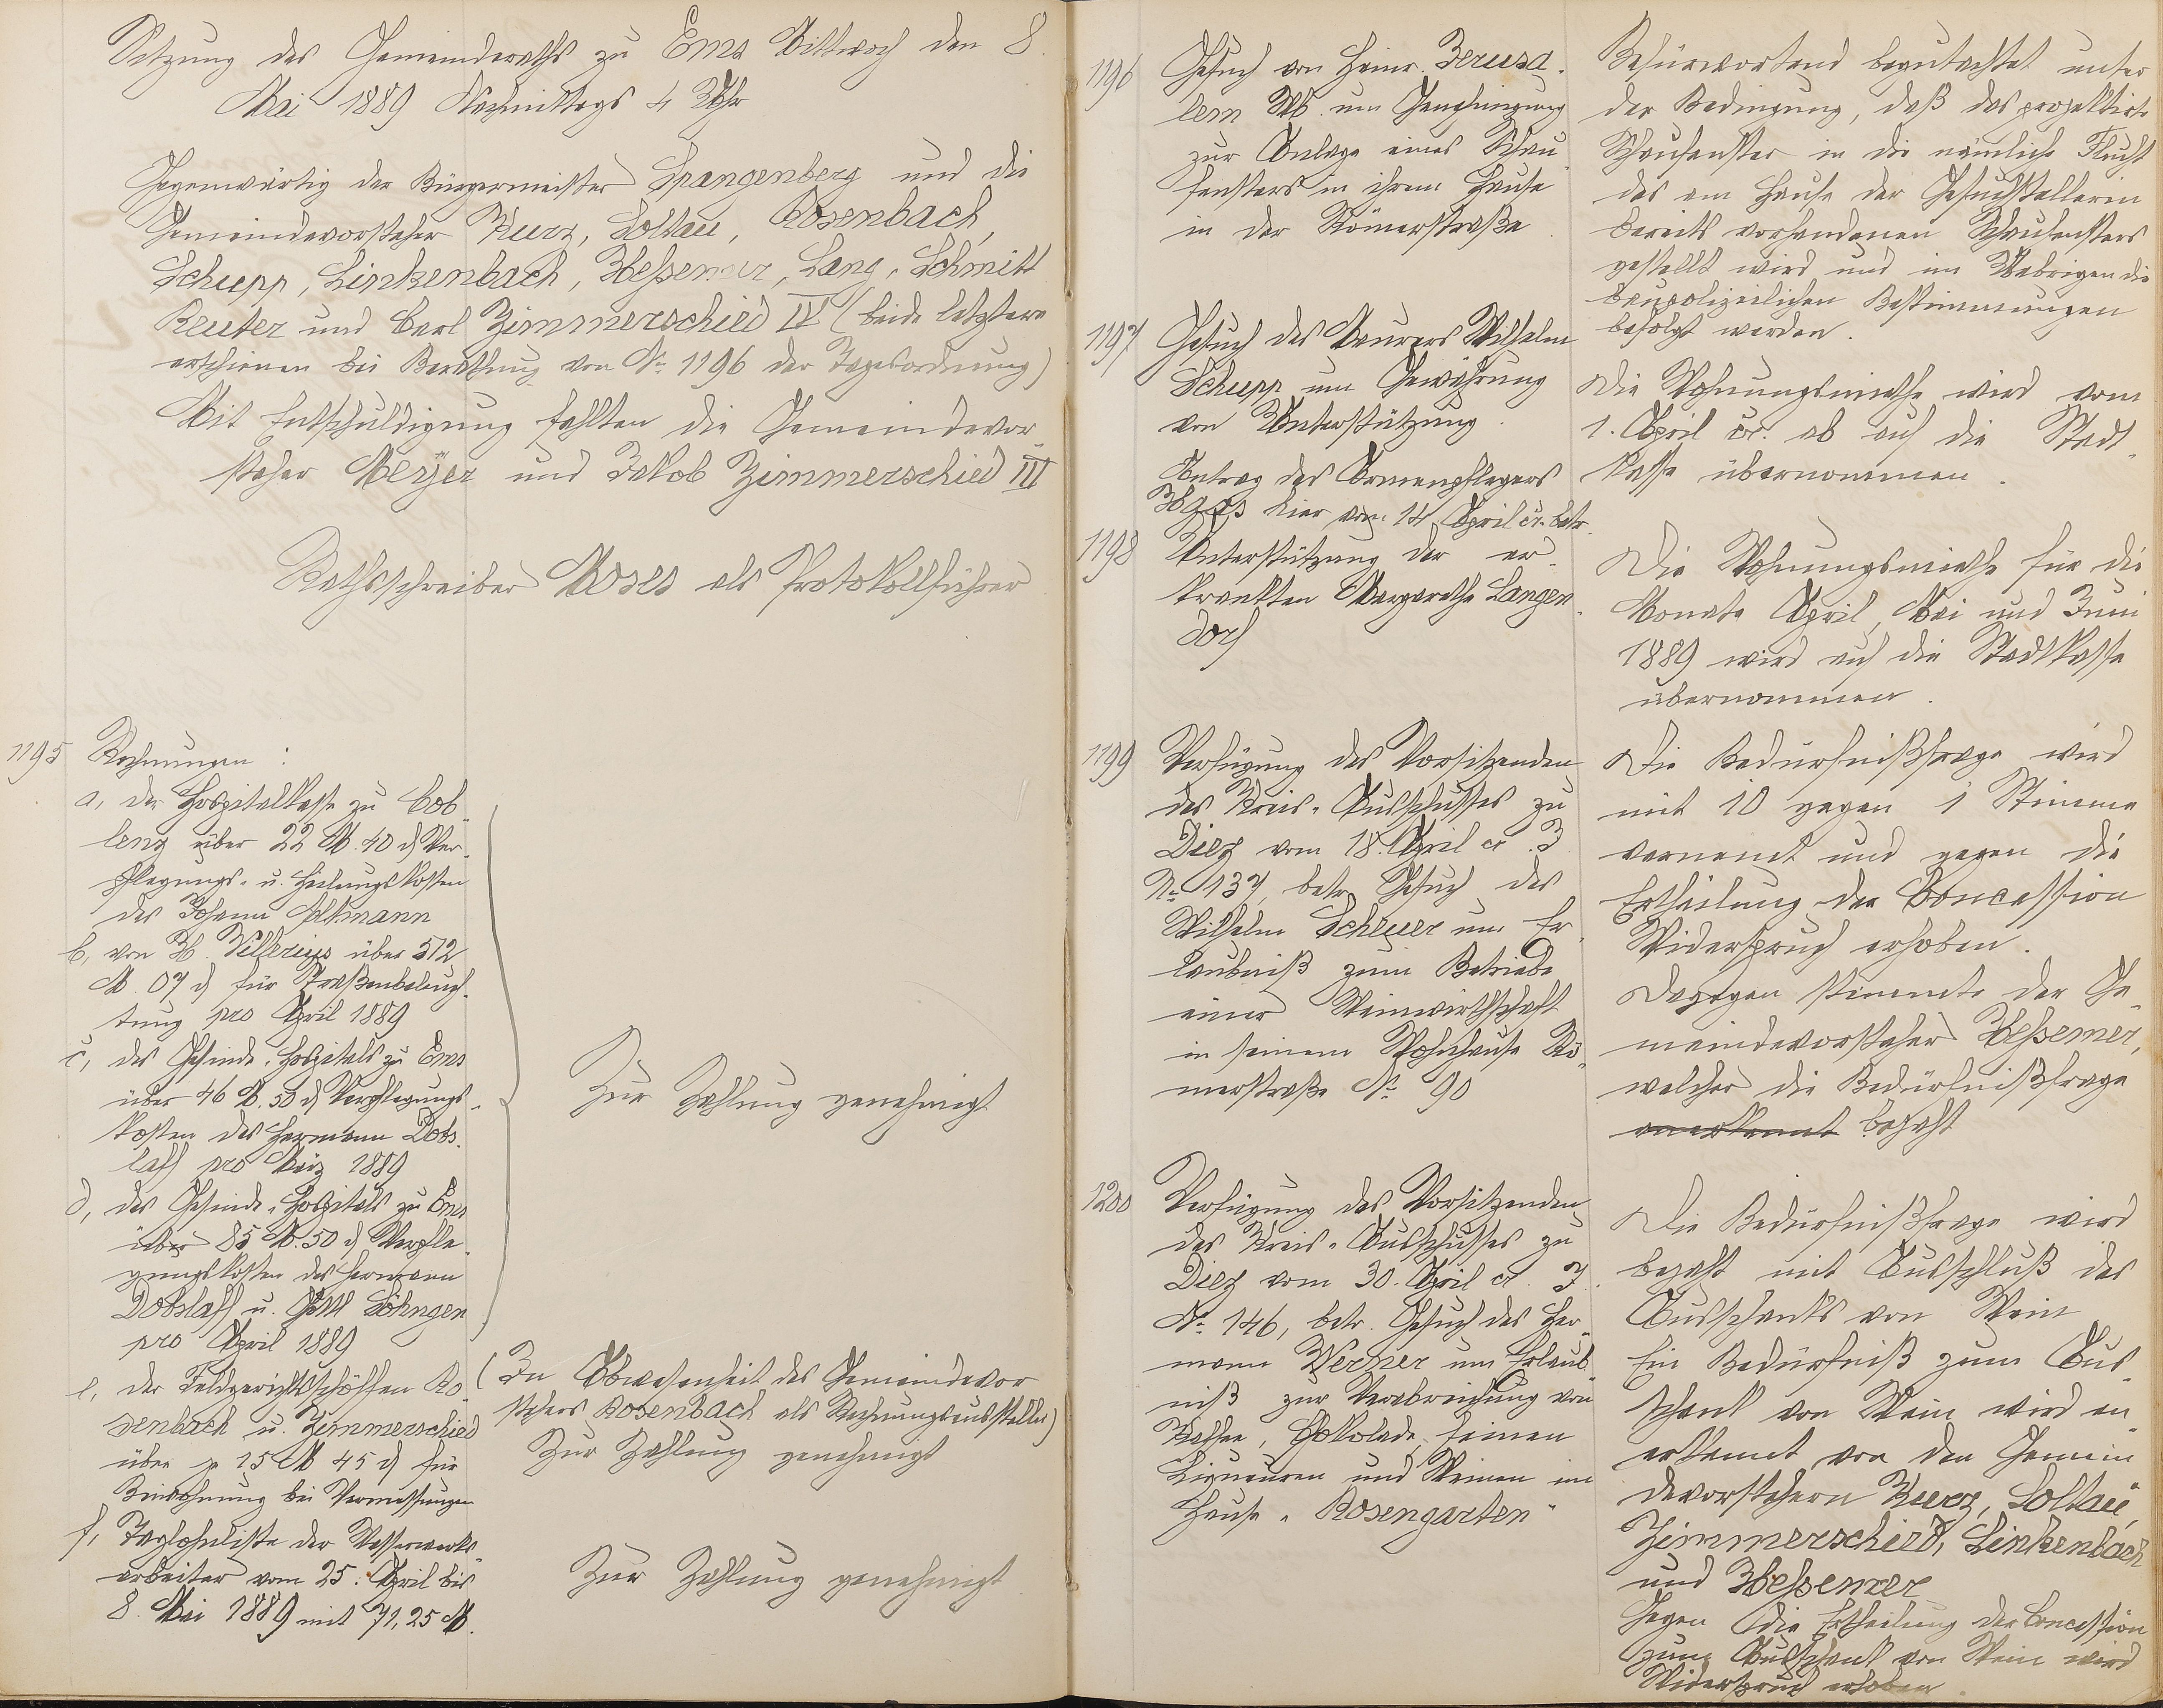 Sitzung des Gemeinderaths zu Ems Mittwoch den 8.
Mai 1889 Nachmittags 4 Uhr
Gegenwärtig der Bürgermeister Spangenberg und die
Gemeindevorsteher Kurz, Soltau, Rosenbach,
Schupp, Linkenbach, Heßemer, Lang, Schmitt
Reuter und Carl Zimmerschied IV (beide letztere
erschienen bei Berathung von No 1196 der Tagesordnung)
Mit Entschuldigung fehlten die Gemeindevor-
steher Meyer und Jakob Zimmerschied III
Rathsschreiber Moses als Protokollführer
1195 Rechnungen:
a, der Hospitalkasse zu Cob-
lenz über 22 M. 40 d Ver-
pflegungs- u. Heilungskosten
des Johann Altmann
b, von H. Villerius über 512
M. 07 d für Straßenbeleuch-
tung pro April 1889
c, des Gesinde-Hospitals zu Ems
über 46 M. 50 d Verpflegungs-
kosten des Hermann Dobs-
laff pro März 1889
d, des Gesinde-Hospitals zu Ems
über 85 M. 50 d Verpfle-
gungskosten des Hermann
Dobslaff u. Göhngen
pro April 1889
Zur Zahlung genehmigt
e, der Feldgerichtsschöffen Ro-
senbach u. Zimmerschied
über je 15 M 45 d für
Beiwohnung bei Vermessungen
(In Abwesenheit des Gemeindevor
stehers Rosenbach als Rechnungsaussteller)
Zur Zahlung genehmigt
f, Taglohnliste der Wasserwerks-
arbeiter vom 25. April bis
8. Mai 1889 mit 71,25 M.
Zur Zahlung genehmigt
1196 Gesuch von Heinr. Jerusa-
lem Wb. um Genehmigung
zur Anlage eines Schau-
fensters in ihrem Hause
in der Römerstraße
Befürwortend begutachtet unter
der Bedingung, daß das projektirte
Schaufenster in die nämliche Flucht
des am Hause der Gesuchstellerin
bereits vorhandenen Schaufensters
gestellt wird und im Uebrigen die
baupolizeilichen Bestimmungen
befolgt werden.
1197 Gesuch des Maurers Wilhelm
Schupp um Gewährung
von Unterstützung.
Die Wohnungsmiethe wird vom
1. April cr. ab auf die Stadt-
kasse übernommen.
Antrag des Armenpflegers
hier vom 14. April cr. betr.
1198 Unterstützung der er-
krankten Margarethe Langen-
dorf
Die Wohnungsmiethe für die
Monate April, Mai und Juni
1889 wird auf die Stadtkasse
übernommen.
1199 Verfügung des Vorsitzenden
des Kreis-Ausschusses zu
Diez vom 18. April cr. J.
No 137, betr. Gesuch des
Wilhelm Scheuer um Er-
laubniß zum Betriebe
einer Weinwirthschaft
in seinem Wohnhause Rö-
merstraße No 90
Die Bedürfnißfrage wird
mit 10 gegen 1 Stimme
verneint und gegen die
Ertheilung der Concession
Widerspruch erhoben.
Dagegen stimmte der Ge-
meindevorsteher Heßemer,
welcher die Bedürfnißfrage
anerkannt bejaht
1200 Verfügung des Vorsitzenden
des Kreis-Ausschusses zu
Diez vom 30. April cr. J.
No 146, betr. Gesuch des Her-
mann Werner um Erlaub-
niß zur Verabreichung von
Kaffee, Chokolade, feinen
Liqueuren und Weinen im
Hause "Rosengarten"
Die Bedürfnißfrage wird
bejaht mit Ausschluß des
Ausschanks von Wein
Ein Bedürfniß zum Aus-
schank von Wein wird an-
erkannt von den Gemein
devorstehern Kurz, Soltau,
Zimmerschied, Linkenbach
und Heßemer
Gegen die Ertheilung der Concession
zum Ausschank von Wein wird
Widerspruch erhoben.